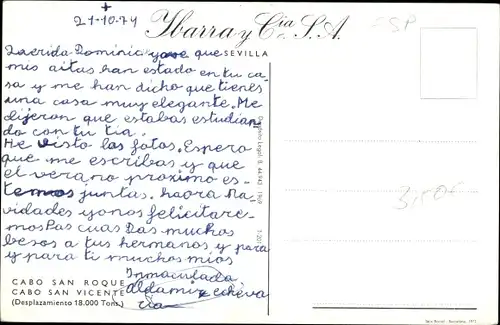 21-10-74
Ybarra y Cía. S. A.
SEVILLA
ESP
Querida Dominic yase que
mis aitas han estado en tu ca
sa y me han dicho que tienes
una casa muy elegante. Me
dijeron que estabas estudian
do con tu tia.
He visto las fotos. Espero
que me escribas y que
el verano proximo es-
temos juntas. haora Na
vidades yonos felicitare
mos Pas cuas Das muchos
besos a tus hermanos y para
y para ti muchos mios
Inmaculada
aldamiz echeva
ria
CABO SAN ROQUE
CABO SAN VICENTE
(Desplazamiento 18.000 Tons.)
Depósito Legal: B. 44.943 - 1969